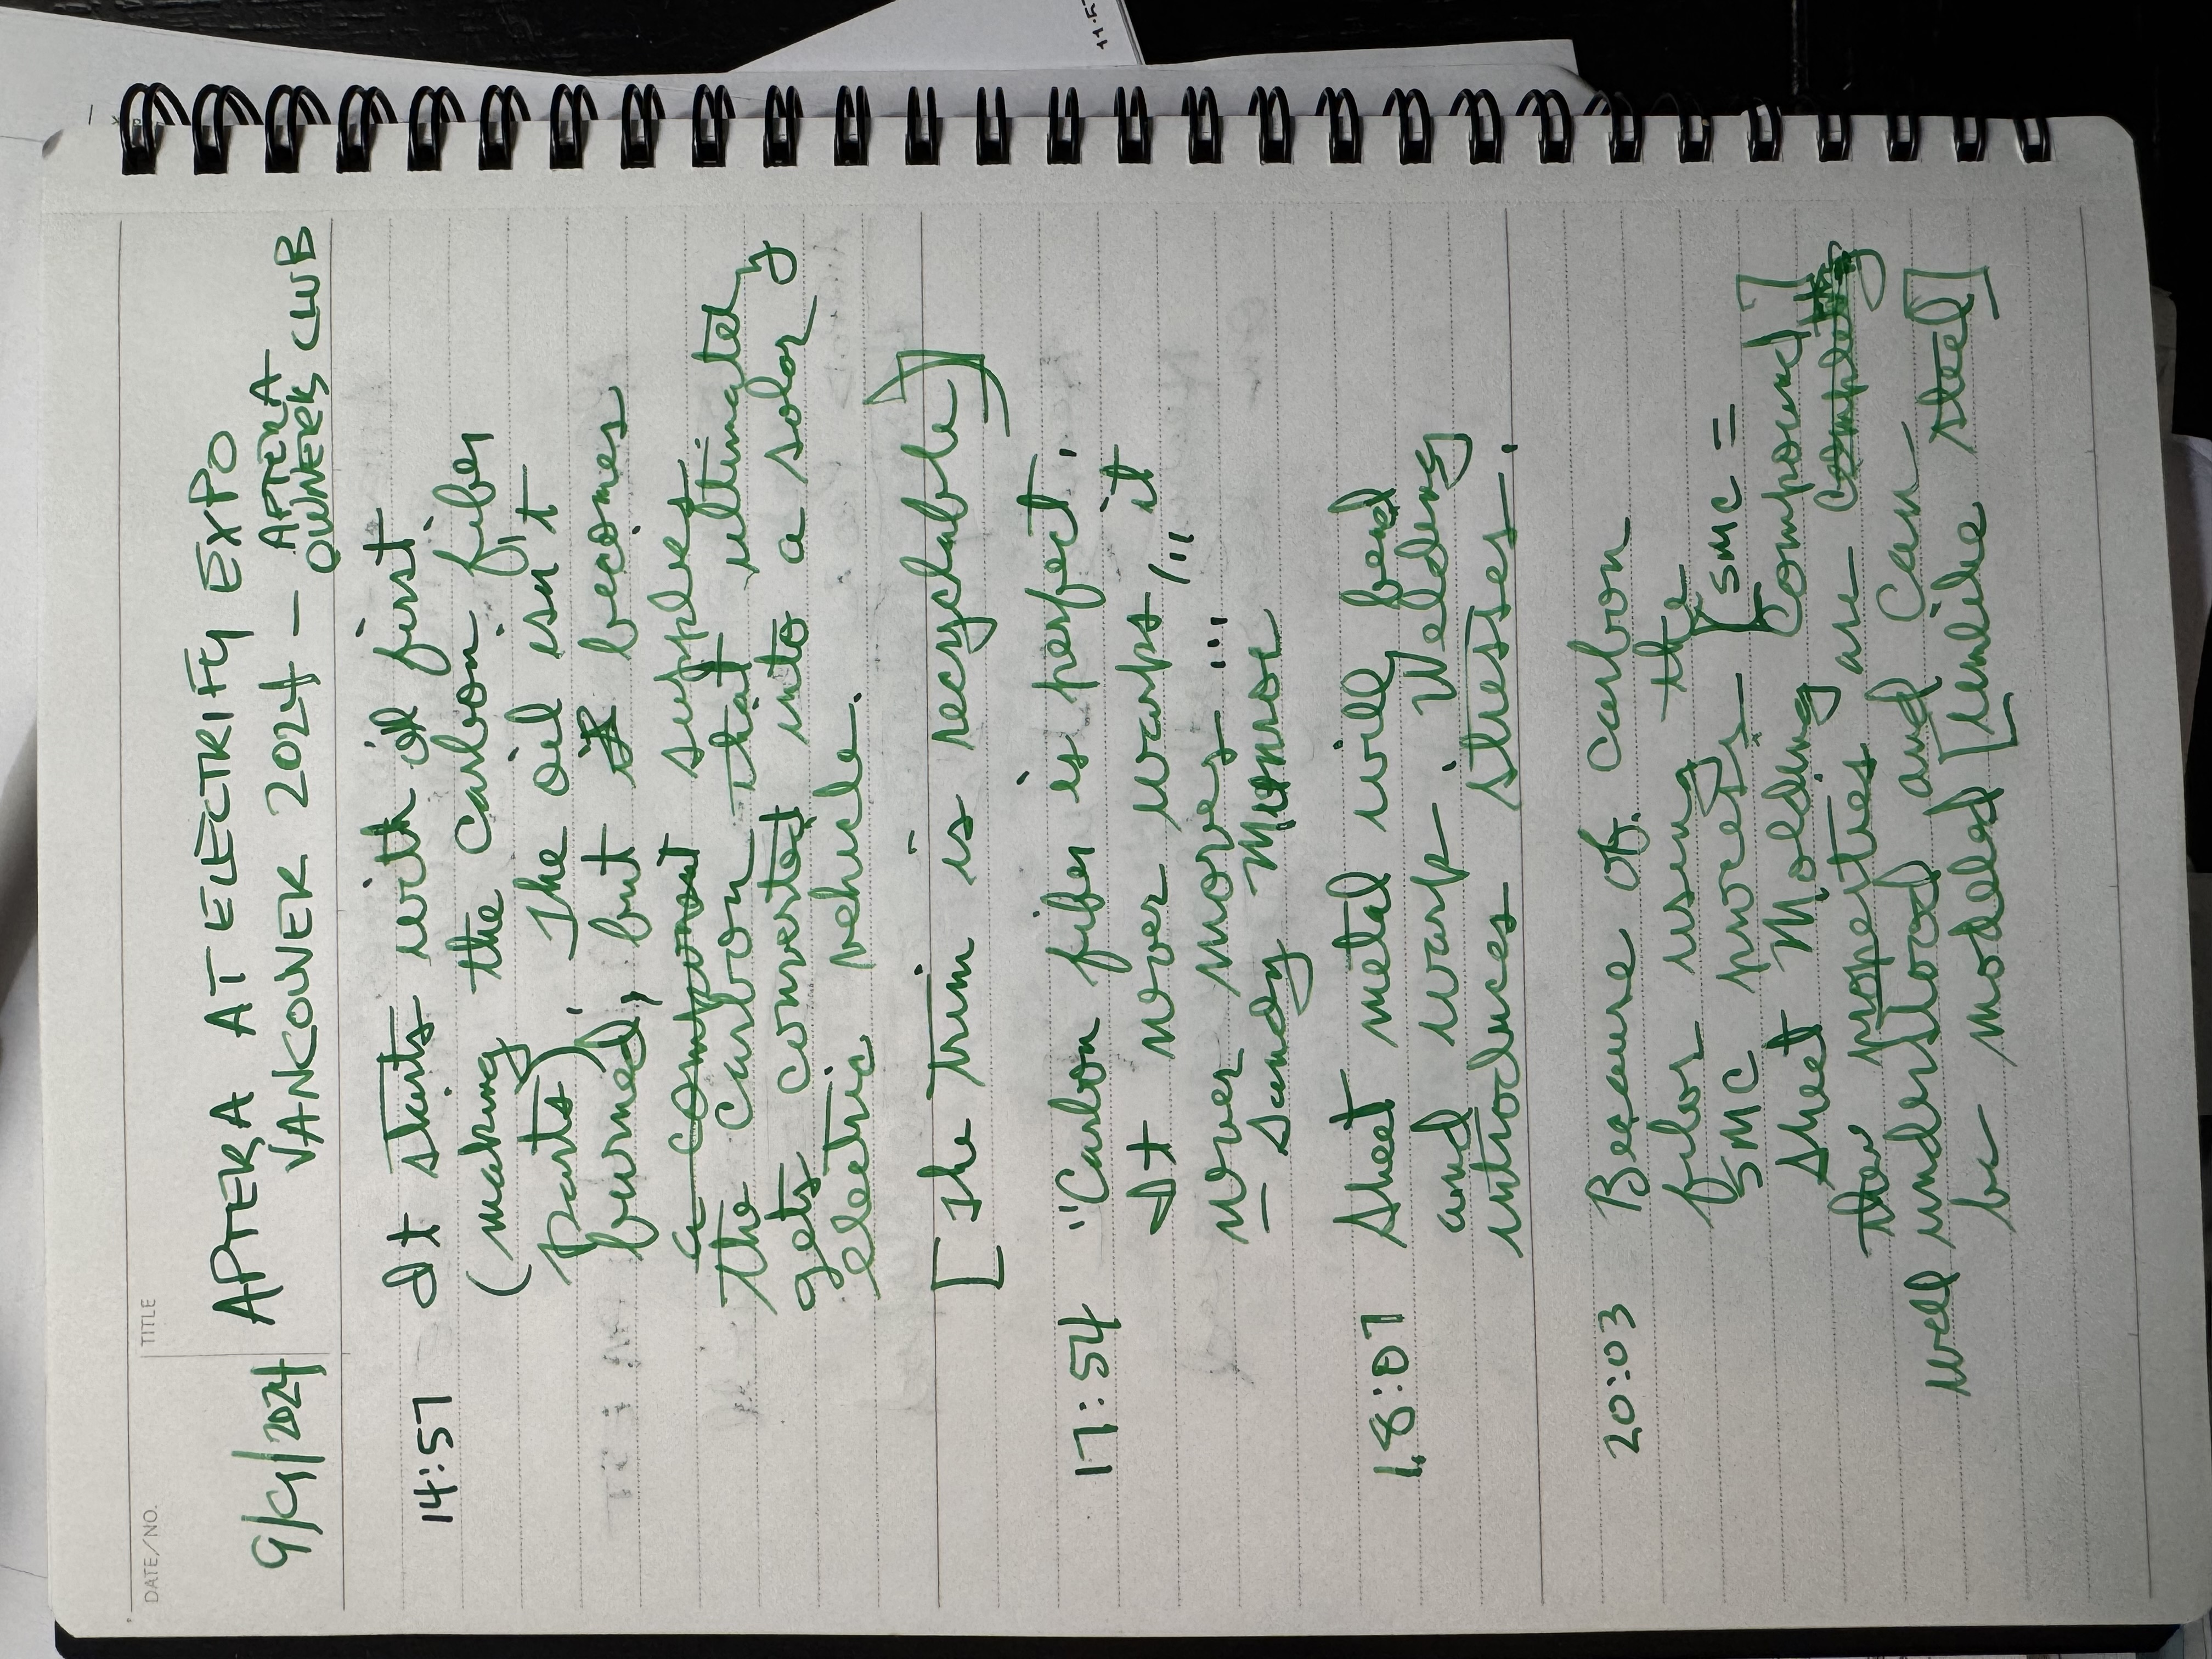 DATE/NO.
TITLE
9/9/2024
APTERA AT ELECTRIFY EXPO
VANCOUVER 2024 - APTERA
OWNERS CLUB
14:57 It starts with oil first
(making the carbon fiber
parts). The oil isn't
burned, but becomes
a component supplies
the carbon that ultimately
gets converted into a solar
electric vehicle.
[The trim is recyclable]
17:54 "Carbon fiber is perfect.
It never warps, it
never moves ..."
- Sandy Munroe
18:07 Sheet metal will bend
and warp. Welding
introduces stresses.
20:03 Because of carbon
fiber using the
SMC process [SMC =
Sheet Molding Compound]
the properties are completely
well understood and can
be modeled [unlike steel]